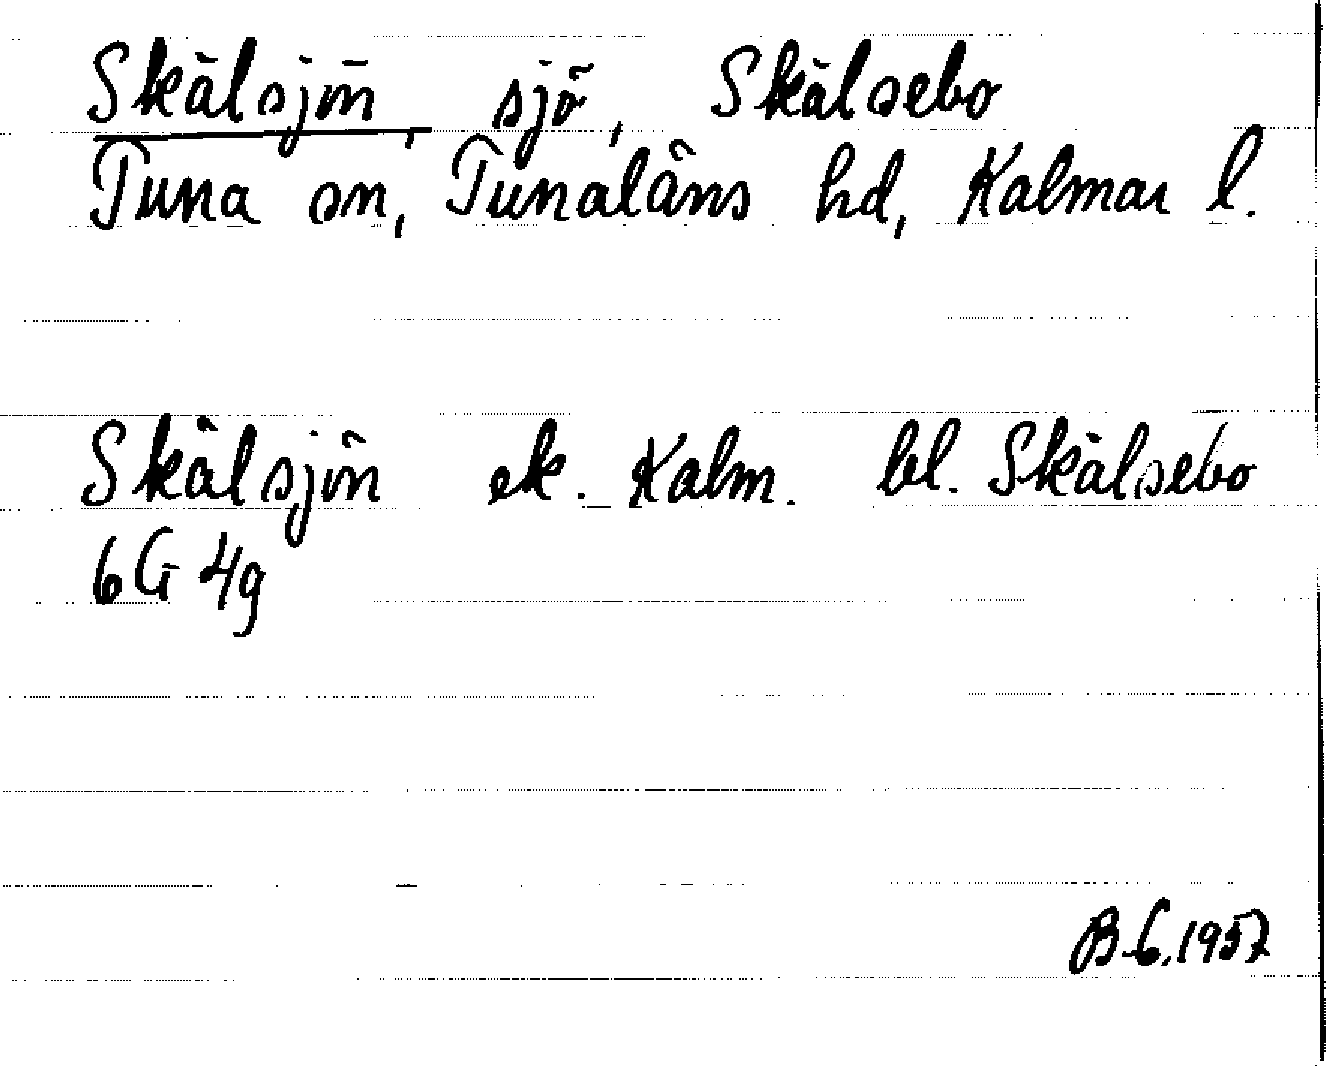 Skälsjön, sjö, Skälsebo
Tuna sn, Tunaläns hd, Kalmar l.
Skälsjön ek. Kalm. bl. Skälsebo
6G 4g
B-G. 1957